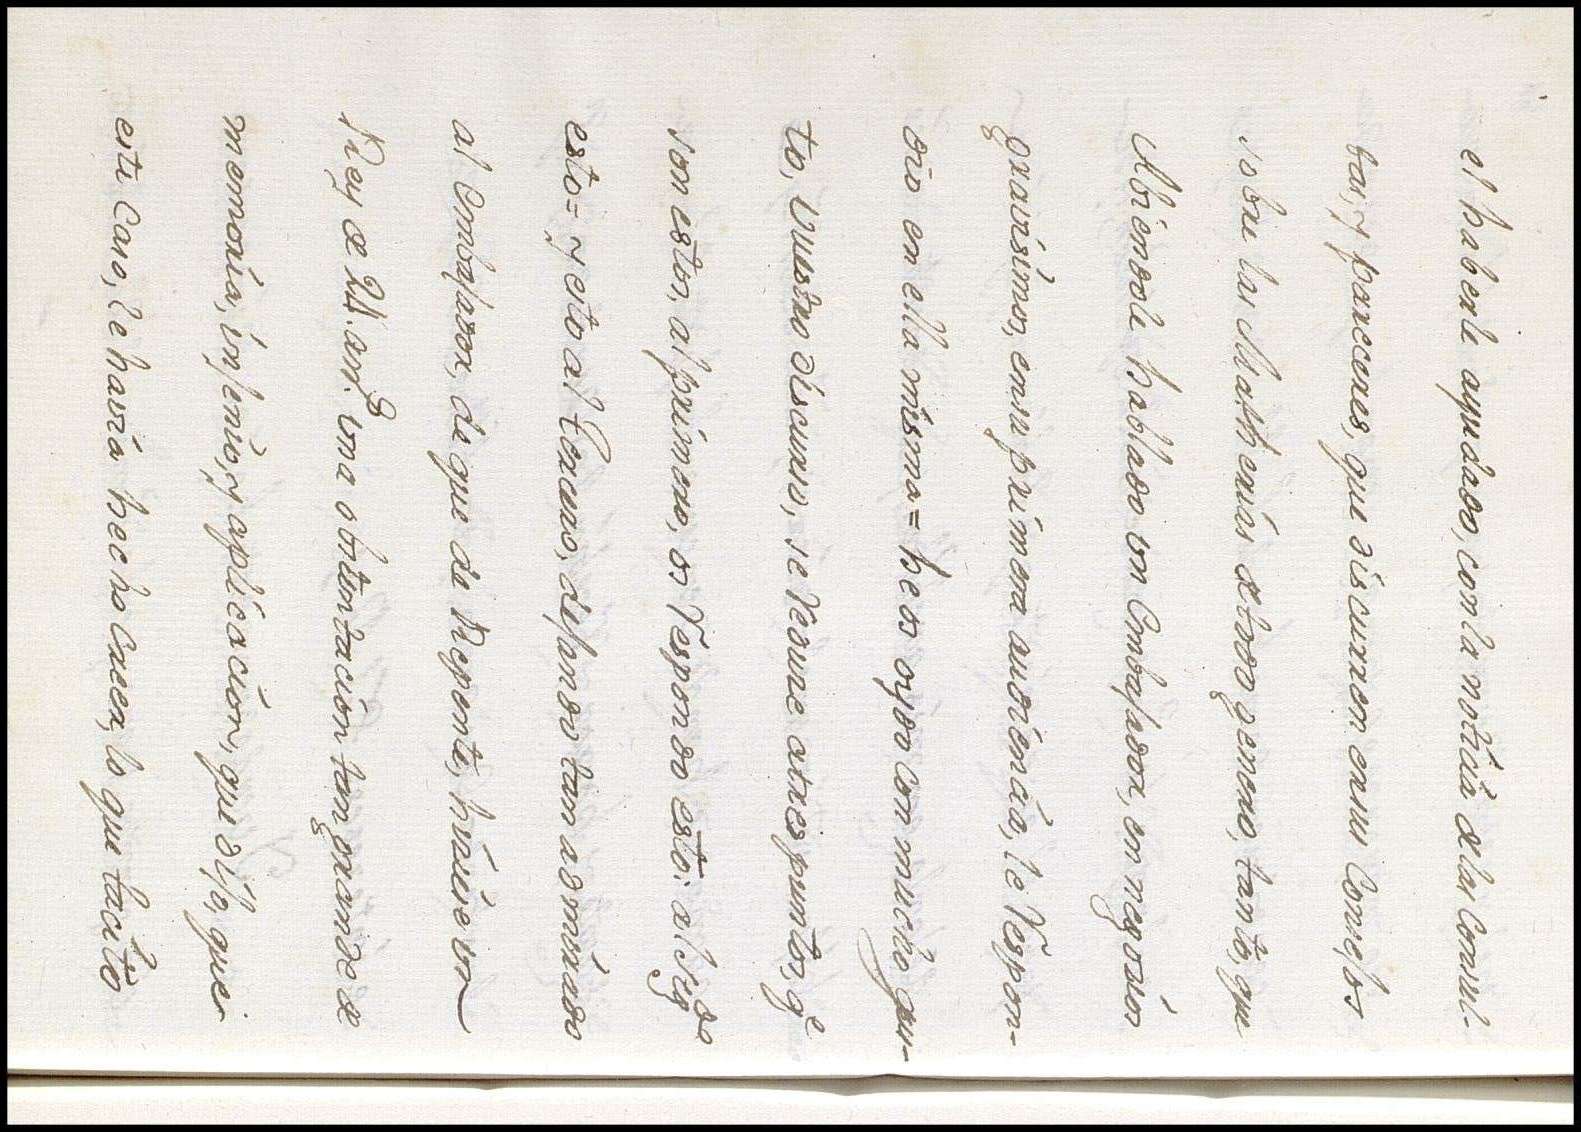 el haberle ayudado, con la notiçia de las Consul-
tas, y pareceres, que discurren en su Consejos
sobre las Matherias de todo genero, tanto, que
Abiendole hablado un Embajador, en negosios
gravisimos, en su primera audiencia, le Respon-
dio en ella misma = he os oydo con mucho gus-
to, vuestro discurso, se Reduce a tres puntos, q^e
son estos, al primero, os Respondo esto: al seg^do
esto = y esto al terçero, dejando tan admirado
al Embajador, de que de Repente, hiciese un
Rey de 21. años una obstentaçion tan grande de
memoria, injenio, y aplicacion, que dijo, que
este caso, le havia hecho creer, lo que tacito